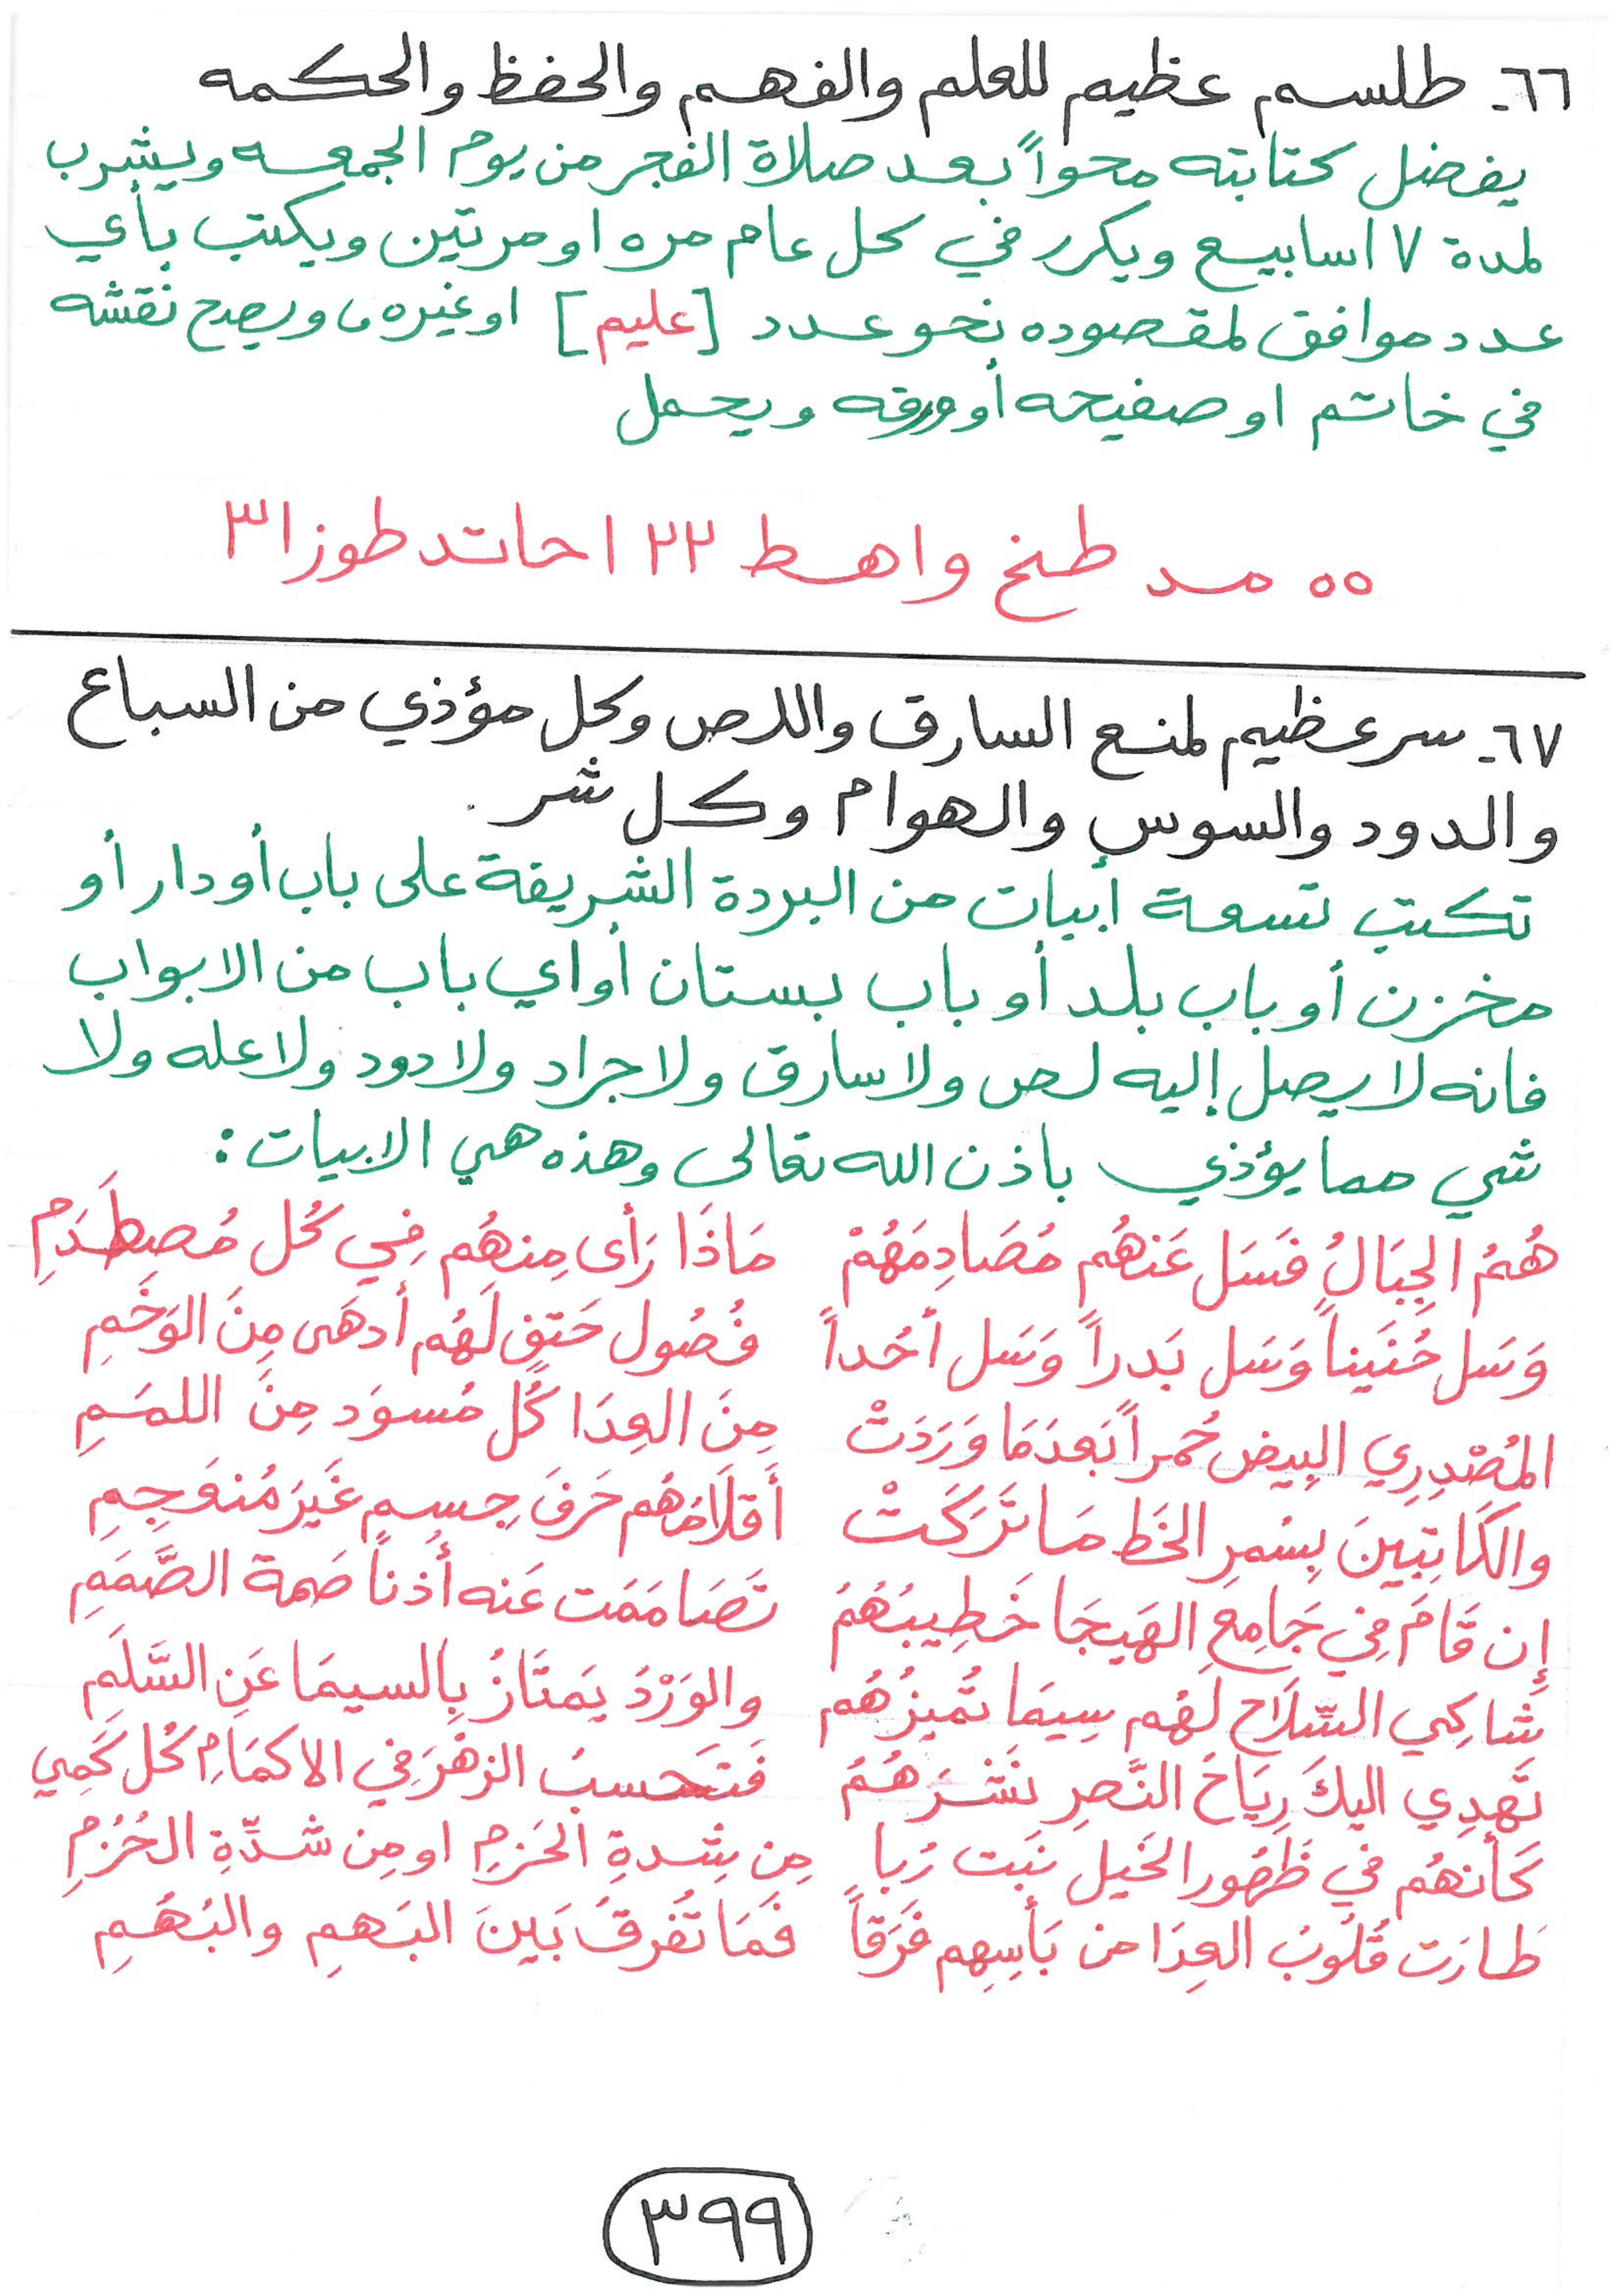 ٦٦- طلسم عظيم للعلم والفهم والحفظ والحكمه
يفضل كتابته محواً بعد صلاة الفجر من يوم الجمعه ويشرب
لمدة ٧ اسابيع ويكرر في كل عام مره او مرتين ويكتب بأي
عدد موافق لمقصوده نحو عدد [عليم] او غيره، ويصح نقشه
في خاتم او صفيحه أو ورقه ويحمل
٥٥ مد طخ واهط ٢٢ احاتد طوزا٣
٦٧- سر عظيم لمنع السارق واللص وكل مؤذي من السباع
والدود والسوس والهوام وكل شر.
تكتب تسعة أبيات من البردة الشريفة على باب أو دار أو
مخزن أو باب بلد أو باب بستان أو اي باب من الابواب
فانه لا يصل إليه لص ولا سارق ولا جراد ولا دود ولا عله ولا
شي مما يؤذي باذن الله تعالى وهذه هي الابيات:
هُمُ الجِبَالُ فَسَل عَنهُم مُصَادِمَهُمْ مَاذَا رَأى مِنهُم فِي كُل مُصطَدَمِ
وَسَل حُنَيناً وَسَل بَدراً وَسَل أحُداً فُصُول حَتفٍ لَهُم أدهَى مِنَ الوَخَمِ
المُصْدِرِي البِيض حُمراً بَعدَمَا وَرَدَتْ مِنَ العِدَا كُل مُسوَد مِنَ اللمَمِ
والكَاتِبِينَ بِسُمرِ الخَط مَا تَرَكَتْ أقلَامُهُم حَرفَ جِسمٍ غَيرَ مُنعَجِمِ
إن قَامَ فِي جَامِعِ الهَيجَا خَطِيبُهُمُ تَصَامَمَت عَنه أُذناً صَمة الصَّمَمِ
شَاكِي السِّلَاح لَهُم سِيمَا تُمَيزُهُم والوَرْدُ يَمتَازُ بِالسيمَا عَنِ السَّلَمِ
تَهدِي اليكَ رِيَاحَ النَّصرِ نَشْرَهُمُ فَتَحسبُ الزهْرَ فِي الاكمَامِ كُل كَمِي
كَأنهُم في ظَهُور الخَيل نَبَت رُباٍ مِن شِدةِ الحَزمِ او مِن شدِّةِ الحُزُمِ
طَارَت قُلُوبُ العِدَا من بَأسِهِم فَرَقاً فَمَا تُفَرقُ بَينَ البَهمِ والبُهَمِ
٣٩٩